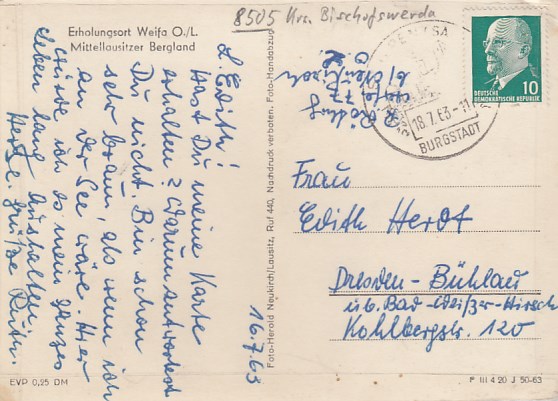 Erholungsort Weifa O./L.
Mittellausitzer Bergland
8505 Krs. Bischofswerda
L. Edith!
Hast Du meine Karte
erhalten? Warum antwortest
Du nicht. Bin schon
sehr braun, als wenn ich
an der See wäre. Hier
würde ich es mein ganzes
Leben lang aushalten.
Herzl. Grüße Ruth.
16.7.63
Foto-Herold Neukirch/Lausitz, Ruf 440, Nachdruck verboten. Foto-Handabzug
18.7.63-11
BURGSTADT
DEUTSCHE
DEMOKRATISCHE REPUBLIK
10
Frau
Edith Herdt
Dresden-Bühlau
üb. Bad-Weißer-Hirsch
Kohlbergstr. 120
EVP 0,25 DM
P III 4 20 J 50-63